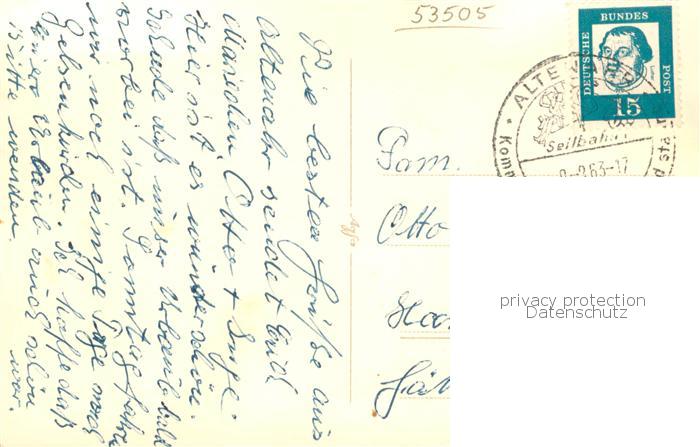 53505
DEUTSCHE
BUNDES
POST
15
ALTE
Seilbahn
2.63-17
Komm
d sta
Die besten Grüße aus
Altenahr sendet Euch
Mariechen Otto + Inge.
Hier ist es wunderschön.
Schade daß unser Urlaub bald
vorbei ist. Samstag fahren
wir noch einige Tage nach
Gelsenkirchen. Ich hoffe daß
Euer Urlaub auch schön
war.
Bitte wenden.
Fam.
Otto
privacy protection
Datenschutz